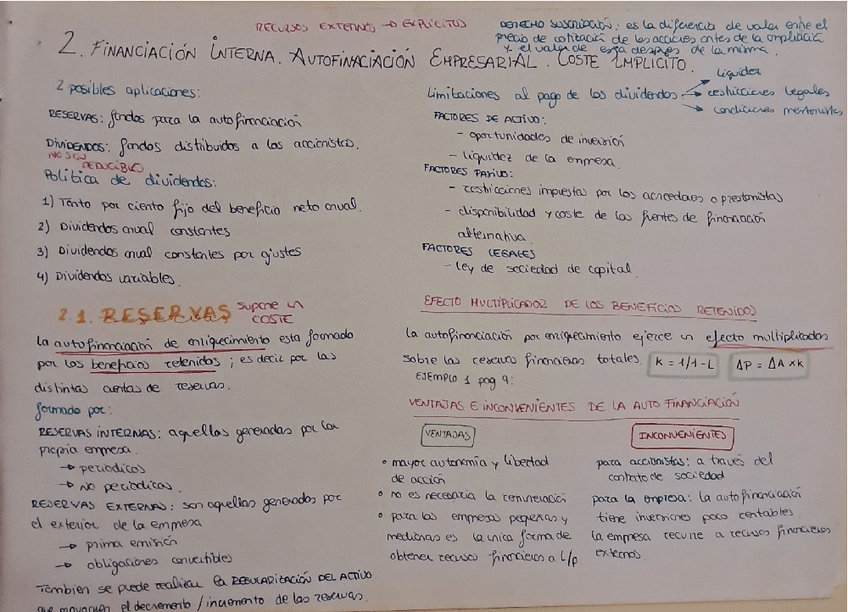 RECURSOS EXTERNOS → EXPLÍCITOS
DERECHO SUSCRIPCIÓN: es la diferencia de valor entre el
precio de cotización de las acciones antes de la ampliación
y el valor de esta despues de la misma.
2. FINANCIACIÓN INTERNA. AUTOFINACIACIÓN EMPRESARIAL. COSTE IMPLICITO.
2 posibles aplicaciones:
RESERVAS: fondos para la autofinanciación
DIVIDENDOS: fondos distribuidos a los accionistas.
NO SON
DEDUCIBLES
Política de dividendos:
1) Tanto por ciento fijo del beneficio neto anual.
2) Dividendos anual constantes
3) Dividendos anual constantes por ajustes
4) Dividendos variables.
2.1. RESERVAS supone un
COSTE
La autofinanciación de enriquecimiento esta formado
por los beneficios retenidos; es decir por las
distintas cuentas de reservas.
formado por:
RESERVAS INTERNAS: aquellas generadas por la
propia empresa.
→ periodicas
→ no periodicas.
RESERVAS EXTERNAS: son aquellas generadas por
el exterior de la empresa
→ prima emisión
→ obligaciones convertibles
Tambien se puede realizar la REGULARIZACIÓN DEL ACTIVO
que provoquen el decremento / incremento de las reservas.
Limitaciones al pago de los dividendos
→ liquidez
→ restricciones legales
→ condiciones
FACTORES DE ACTIVO:
- oportunidades de inversión
- liquidez de la empresa.
FACTORES PASIVO:
- restricciones impuestas por los acreedores o prestamistas
- disponibilidad y coste de las fuentes de financiación
alternativa.
FACTORES LEGALES
- ley de sociedad de capital.
EFECTO MULTIPLICADOR DE LOS BENEFICIOS RETENIDOS
La autofinanciación por enriquecimiento ejerce un efecto multiplicador
sobre los recursos financieros totales. K = 1/1-L ΔP = ΔA x K
EJEMPLO 1 pag 9:
VENTAJAS E INCONVENIENTES DE LA AUTO FINANCIACIÓN
VENTAJAS
• mayor autonomía y libertad
de acción
• no es necesaria la remuneración
• para las empresas pequeñas y
medianas es la unica forma de
obtener recursos financieros a L/p
INCONVENIENTES
para accionistas: a través del
contrato de sociedad
para la empresa: la autofinanciación
tiene inversiones poco rentables.
la empresa recurre a recursos financieros
externos.